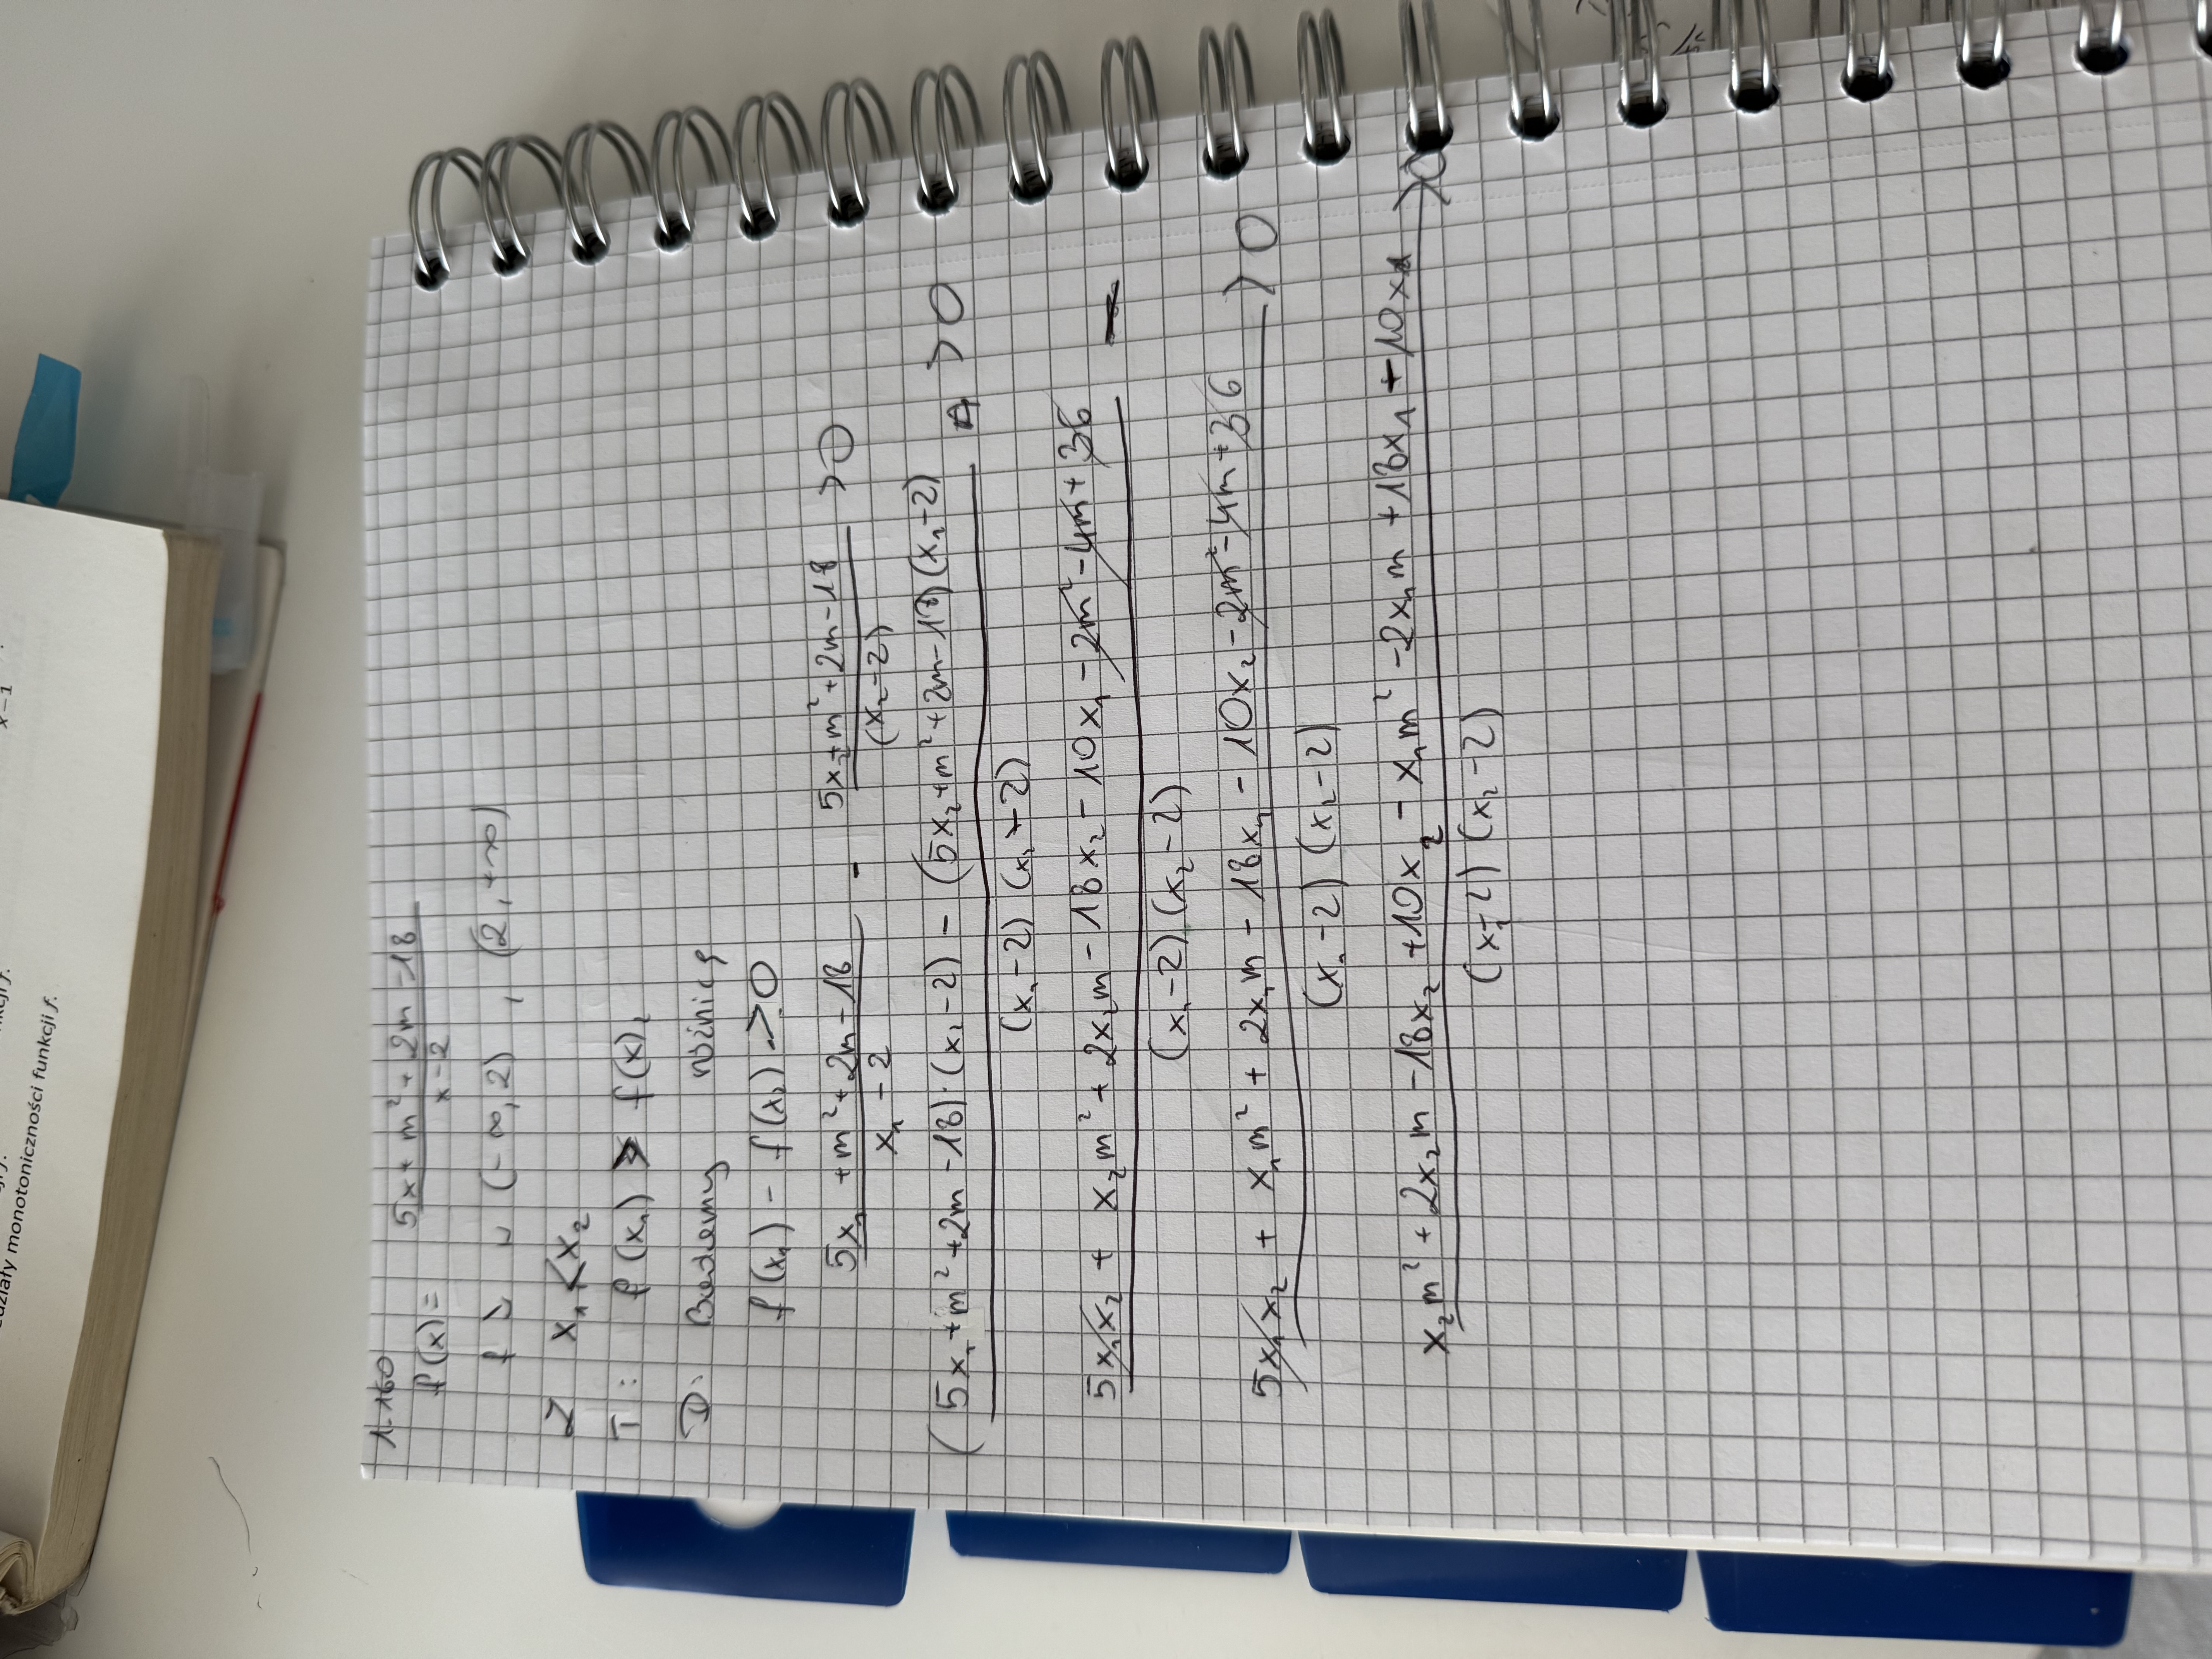 x-1
nkcji f.
edziały monotoniczności funkcji f.
1.160
f(x)= \frac{5x+m²+2m-18}{x-2}
f ↘ w (-∞,2) , (2,+∞)
Z x₁<x₂
T: f(x₁) > f(x)₂
D: Badamy różnicę
f(x₁) - f(x₂) > 0
\frac{5x₁+m²+2m-18}{x₁-2} - \frac{5x₂+m²+2m-18}{(x₂-2)} >0
\frac{(5x₁+m²+2m-18)·(x₂-2) - (5x₂+m²+2m-18)(x₁-2)}{(x₁-2)(x₂-2)} >0
\frac{5x₁x₂ + x₂m² + 2x₂m - 18x₂ - 10x₁ - 2m² - 4m + 36}{(x₁-2)(x₂-2)} -
\frac{5x₁x₂ + x₁m² + 2x₁m - 18x₁ - 10x₂ - 2m² - 4m + 36}{(x₁-2)(x₂-2)} >0
\frac{x₂m² + 2x₂m - 18x₂ + 10x₂ - x₁m² - 2x₁m + 18x₁ + 10x₁}{(x₁-2)(x₂-2)} >0